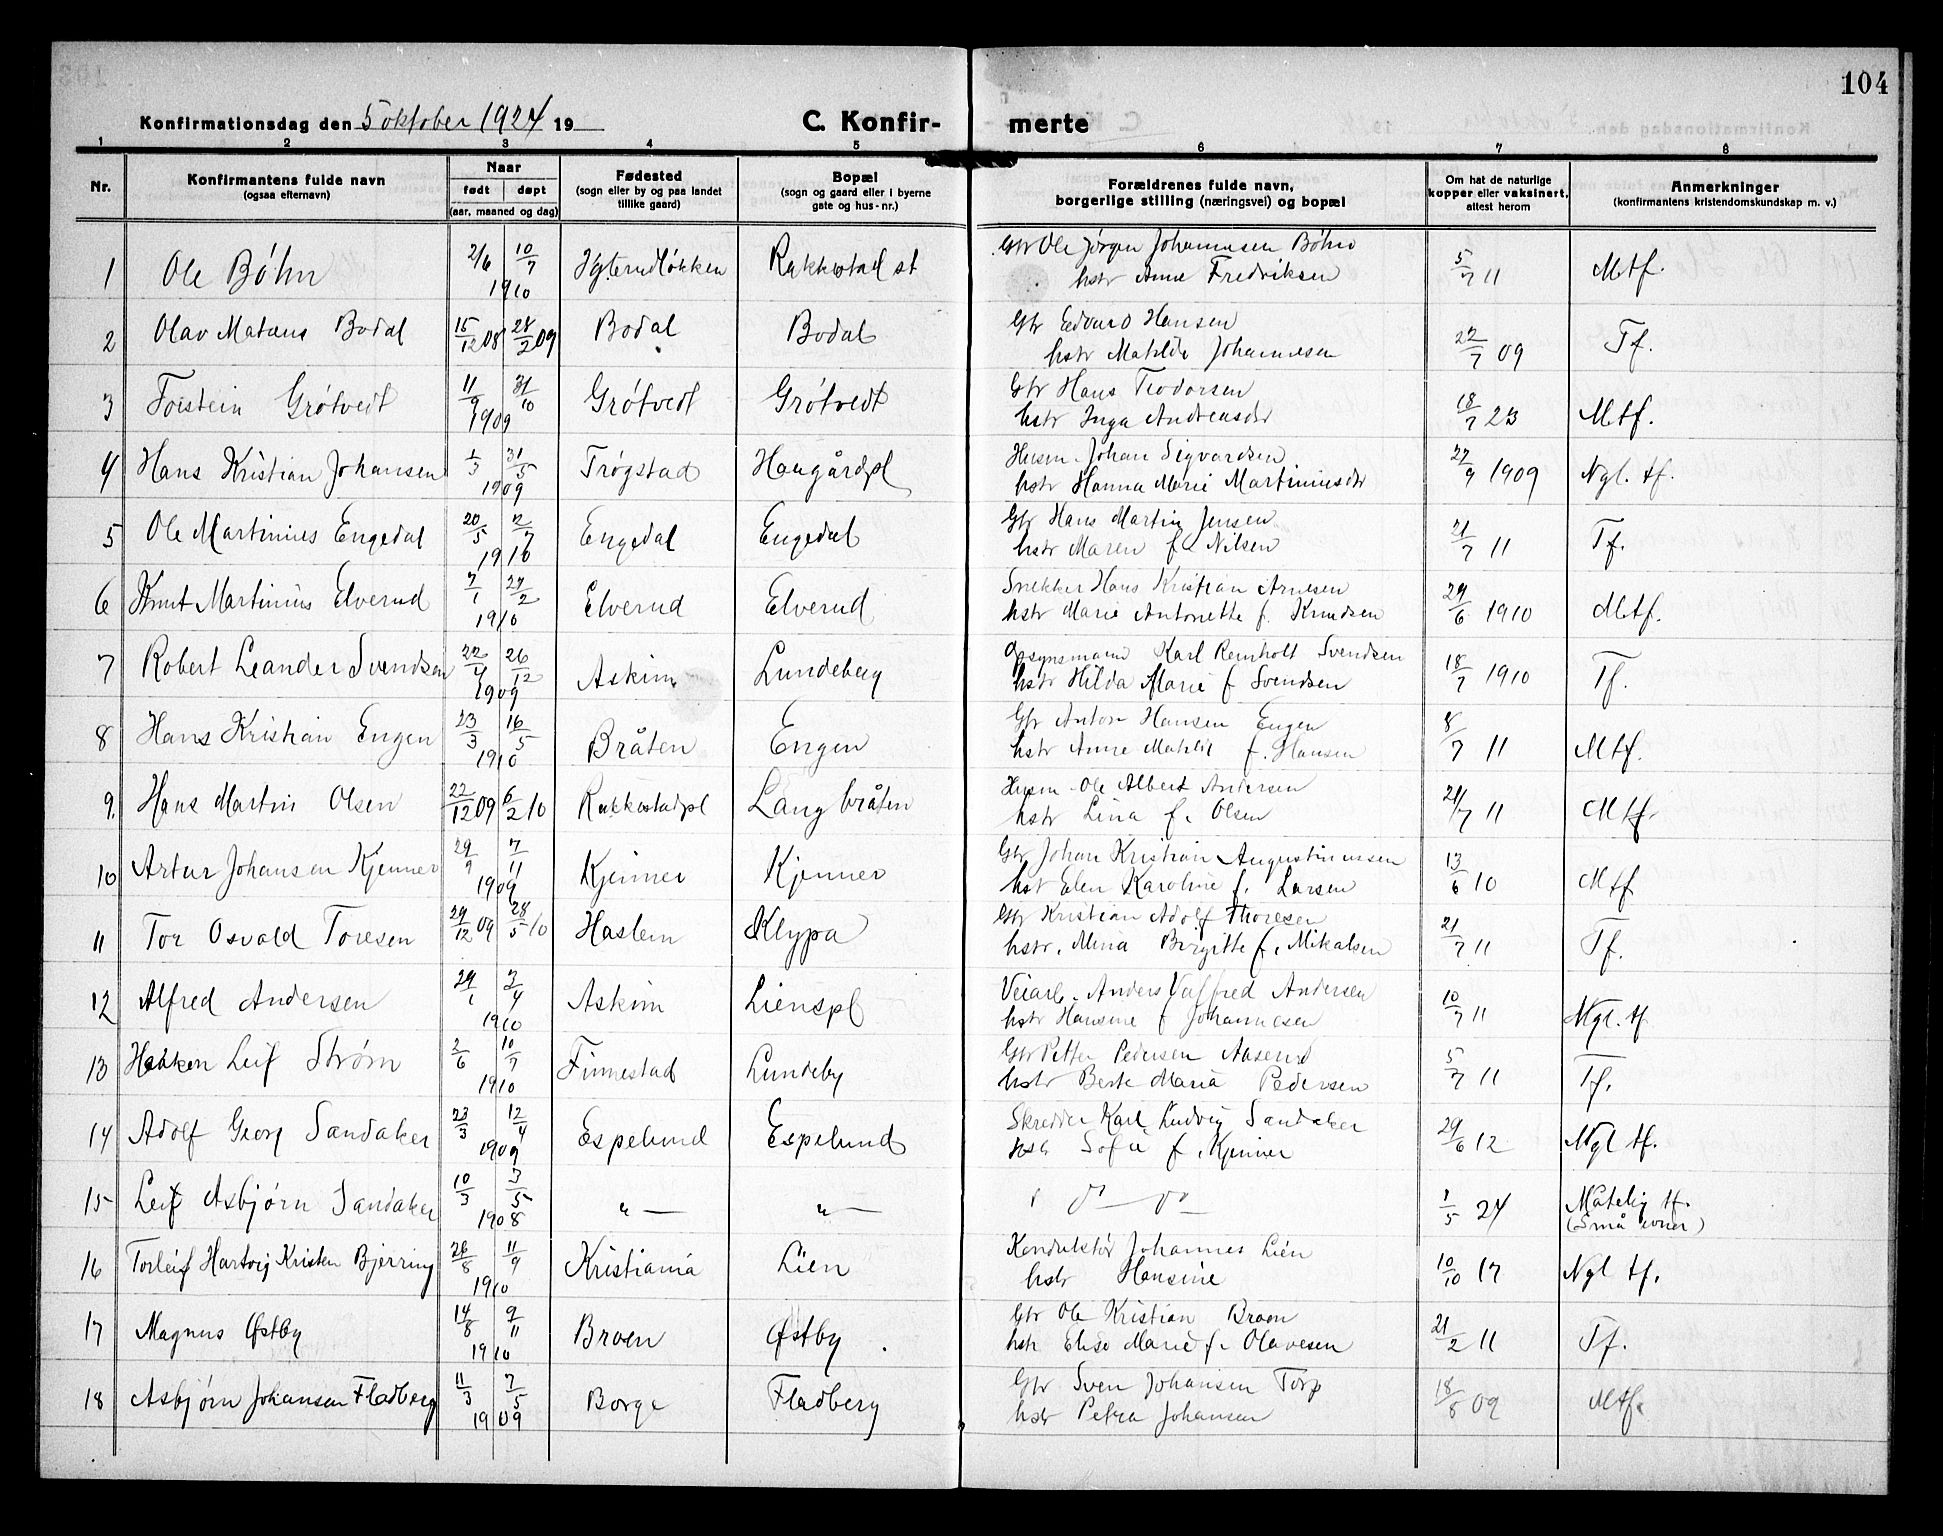 104
Konfirmationsdag den 5 oktober 1924 19
C. Konfirmerte
1 2 3 4 5 6 7 8
Nr.
Konfirmantens fulde navn
(ogsaa efternavn)
Naar
født døpt
(aar, maaned og dag)
Fødested
(sogn eller by og paa landet
tillike gaard)
Bopæl
(sogn og gaard eller i byerne
gate og hus-nr.)
Forældrenes fulde navn,
borgerlige stilling (næringsvei) og bopæl
Om hat de naturlige
kopper eller vaksinert,
attest herom
Anmerkninger
(konfirmantens kristendomskundskap m. v.)
1 Ole Bøhn 2/6 10/7 1910 Rakkestad st Gbr Ole Jørgen Johannesen Bøhn 5/7 11 Mtf.
hstr Anne Fredriksen
2 Olav Matæus Bodal 15/12 08 28/2 09 Bodal Bodal Gbr Edvard Hansen 22/7 09 Tf.
hstr Matilde Johannesen
3 Torstein Grøtvedt 11/9 31/10 1909 Grøtvedt Grøtvedt Gbr Hans Teodorsen 18/7 23 Mtf.
hstr Inga Andreasdr
4 Hans Kristian Johansen 1/3 31/5 1909 Trøgstad Haugårdpl Husm. Johan Sigvardsen 27/9 1909 Ngl. tf.
hstr Hanna Marie Martiniusdr
5 Ole Martinius Engedal 20/5 12/7 1910 Engedal Engedal Gbr Hans Martin Jensen 21/7 11 Tf.
hstr Maren f. Nilsen
6 Knut Martinius Elverud 7/1 27/2 1910 Elverud Elverud Snekker Hans Kristian Arnesen 29/6 1910 Mtf.
hstr Marie Antonette f. Knudsen
7 Robert Leander Svendsen 22/4 26/12 1909 Askim Lundeby Opsynsmann Karl Reinholt Svendsen 18/7 1910 Tf.
hstr Hilda Marie f Svendsen
8 Hans Kristian Engen 23/3 16/5 1910 Bråten Engen Gbr Anton Hansen Engen 8/7 11 Mtf.
hstr Anne Matilde f. Hansen
9. Hans Martin Olsen 22/12 09 6/2 10 Rakkestadpl Langbråten Husm. Ole Albert Andersen 21/7 11 Mtf.
hstr Lina f. Olsen
10 Artur Johansen Kjenner 29/9 7/11 1909 Kjenner Kjenner Gbr Johan Kristian Augustinussen 13/6 10 Mtf
hst Elen Karoline f. Larsen
11 Tor Osvald Toresen 29/12 09 28/5 10 Haslem Klypa Gbr Kristian Adolf Thoresen 21/7 11 Tf.
hstr. Mina Birgitte f. Mikalsen
12 Alfred Andersen 29/1 3/4 1910 Askim Lienspl Veiarb. Anders Valfred Andersen 10/7 11 Ngl. tf
hstr Hansine f Johannesen
13 Håkon Leif Strøm 2/6 10/7 1910 Finnestad Lundeby Gbr Petter Pedersen Aaserud 5/7 11 Tf.
hstr Berte Maria Pedersen
14 Adolf Georg Sandaker 23/3 12/4 1909 Espelund Espelund Skredder Karl Ludvig Sandaker 29/6 12 Ngl tf.
hstr Sofie f. Kjenner
15 Leif Asbjørn Sandaker 10/3 3/5 1908 " — " — 1/5 24 Måtelig tf.
(Små evner)
16 Torleif Hartvig Kristen Bjerring 26/8 11/9 1910 Kristiania Lien Konduktør Johannes Lien 10/10 17 Ngl tf.
hstr Hansine
17 Magnus Østby 14/8 9/11 1910 Broen Østby Gbr Ole Kristian Broen 21/2 11 Tf.
hstr Elise Marie f. Olavesen
18 Asbjørn Johansen Fladberg 11/3 7/5 1909 Borge Fladberg Gbr Sven Johansen Torp 18/8 09 Mtf.
hstr Petra Johansen